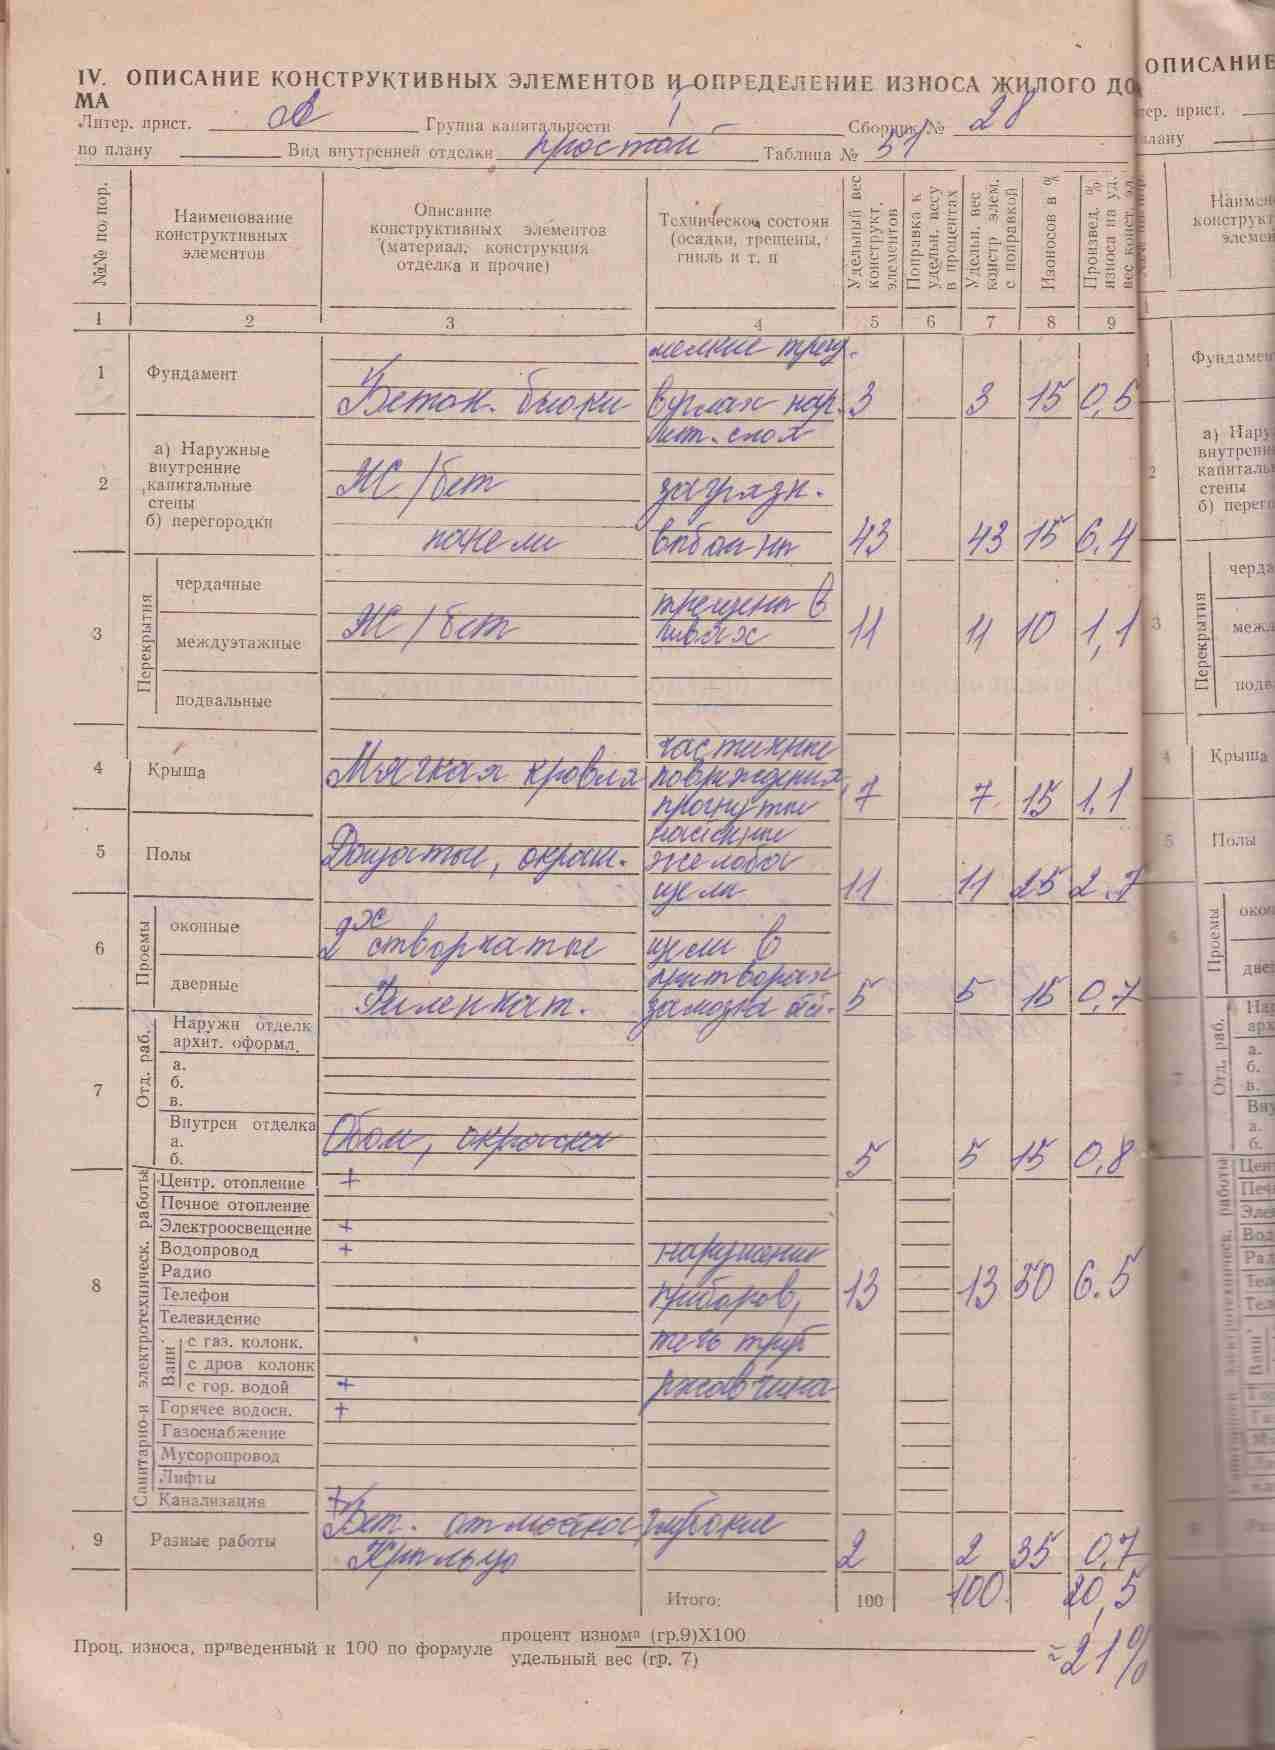 IV. ОПИСАНИЕ КОНСТРУКТИВНЫХ ЭЛЕМЕНТОВ И ОПРЕДЕЛЕНИЕ ИЗНОСА ЖИЛОГО ДО
МА
Литер. прист. А Группа капитальности I Сборник № 28
по плану Вид внутренней отделки простой Таблица № 51
№№ по пор.
Наименование конструктивных элементов
Описание конструктивных элементов (материал, конструкция отделка и прочие)
Техническое состоян (осадки, трещены, гниль и т. п
Удельный вес конструкт. элементов
Поправка к удельн. весу в процентах
Удельн. вес констр элем. с поправкой
Изоносов в %
Произвед. % износа на уд. вес конст. эл
1 2 3 4 5 6 7 8 9
мелкие трещ.
1 Фундамент Бетон. блоки в углах нар. 3 3 15 0,5
шт. слоя
2 а) Наружные внутренние капитальные стены б) перегородки
Ж/бет загрязн.
панели выбоины 43 43 15 6,4
3 Перекрытия
чердачные
трещены в
междуэтажные Ж/бет швах 11 11 10 1,1
подвальные
частичные
4 Крыша Мягкая кровля повреждения, 7 7 15 1.1
прогнутые
настенные
5 Полы Дощатые, окраш. желоба
щели 11 11 25 2.7
6 Проемы
оконные 2х створчатые щели в
притворах
дверные Филенчат. 5 5 15 0,7
7 Отд. раб.
Наружн отделк
архит. оформл.
а.
б.
в.
Внутрен отделка Обои, окраска
а.
б. 5 5 15 0,8
8 Санитарно-и электротехническ. работы
Центр. отопление +
Печное отопление
Электроосвещение +
Водопровод + нарушение
Радио
Телефон приборов, 13 13 50 6.5
Телевидение
течь труб
Ванн.
с газ. колонк.
с дров колонк
с гор. водой + ржавчина
Горячее водосн. +
Газоснабжение
Мусоропровод
Лифты
Канализация +
Бет. отмостка глубокие
9 Разные работы Крыльцо 2 2 35 0,7
Итого: 100 100 20,5
Проц. износа, приведенный к 100 по формуле процент износа (гр.9)X100
удельный вес (гр. 7)
≈21%
ОПИСАНИЕ
тер. прист.
плану
1
Фундамен
2
3 Перекрытия
4 Крыша
5 Полы
Проемы
Отд. раб.